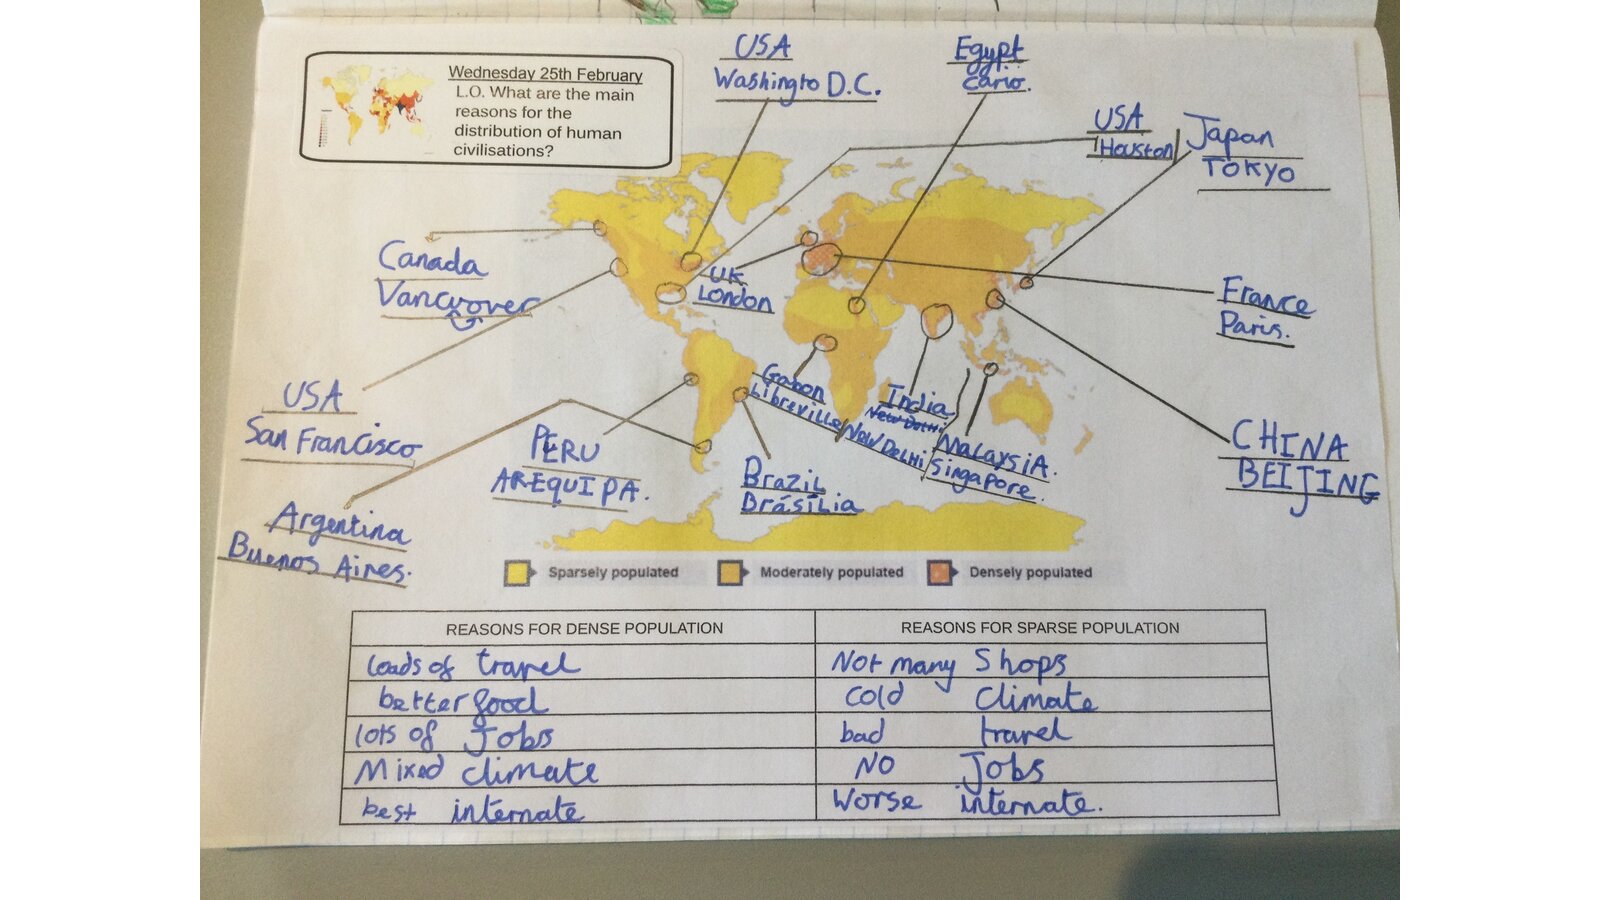 Wednesday 25th February
L.O. What are the main
reasons for the
distribution of human
civilisations?
USA
Washingto D.C.
Egypt
Cario.
USA
Houston
Japan
TOKYO
Canada
Vancuover
UK
London
France
Paris.
USA
San Francisco
Gabon
Libreville
India
New Delhi
New DeLHi
MalaysiA.
Singapore.
CHINA
BEIJING
PERU
AREQUIPA.
Brazil
Brásilia
Argentina
Buenos Aires.
Sparsely populated
Moderately populated
Densely populated
REASONS FOR DENSE POPULATION
REASONS FOR SPARSE POPULATION
loads of travel
Not many Shops
better food
cold Climate
lots of Jobs
bad travel
Mixed climate
No Jobs
best internate
Worse internate.